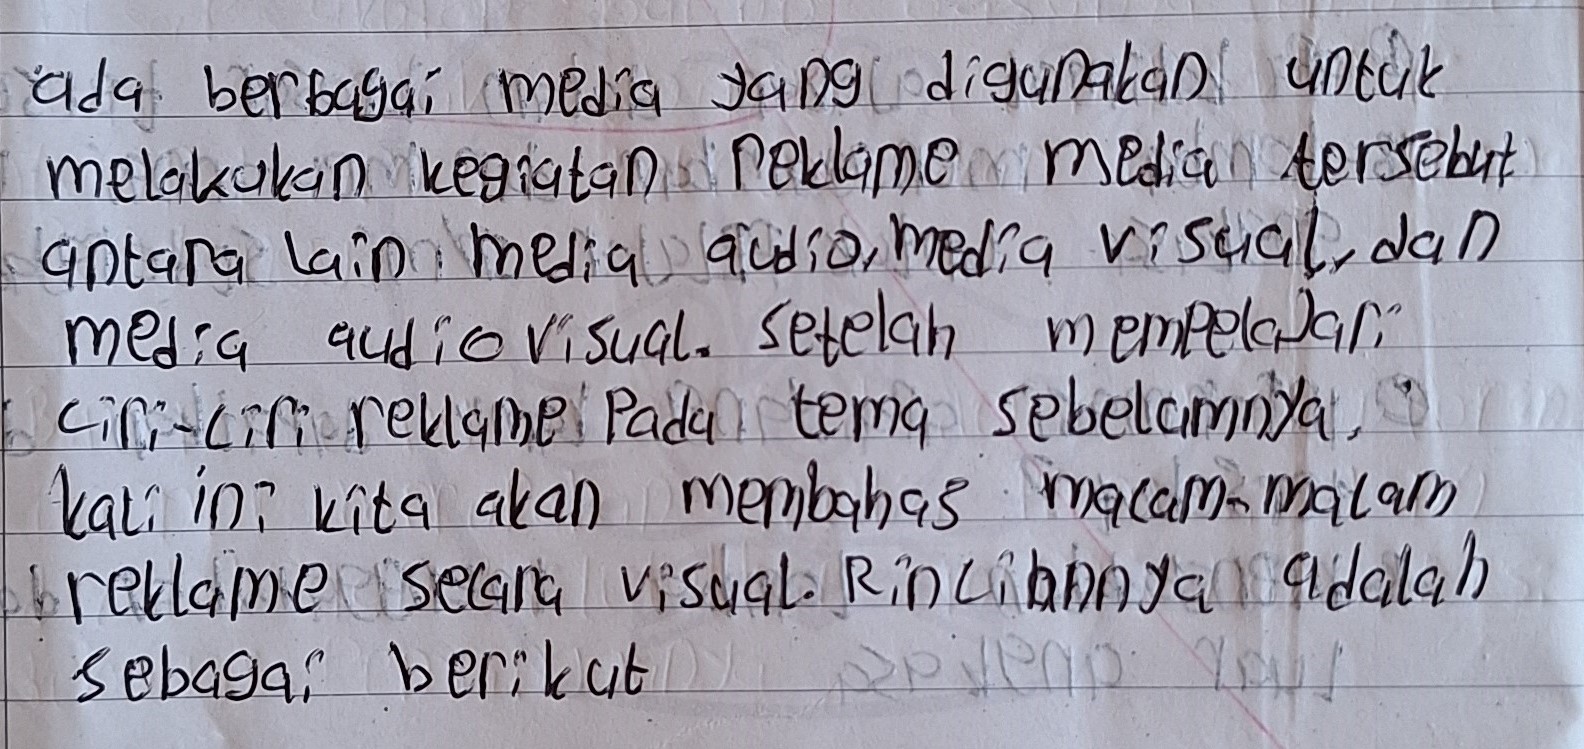 ada berbagai media yang digunakan untuk
melakukan kegiatan reklame media tersebut
antara lain media audio, media visual, dan
media audiovisual. setelah mempelajari
ciri-ciri reklame Pada tema sebelamnya,
kali ini kita akan membahas macam-macam
reklame secara visual. Rinciannya adalah
sebagai berikut